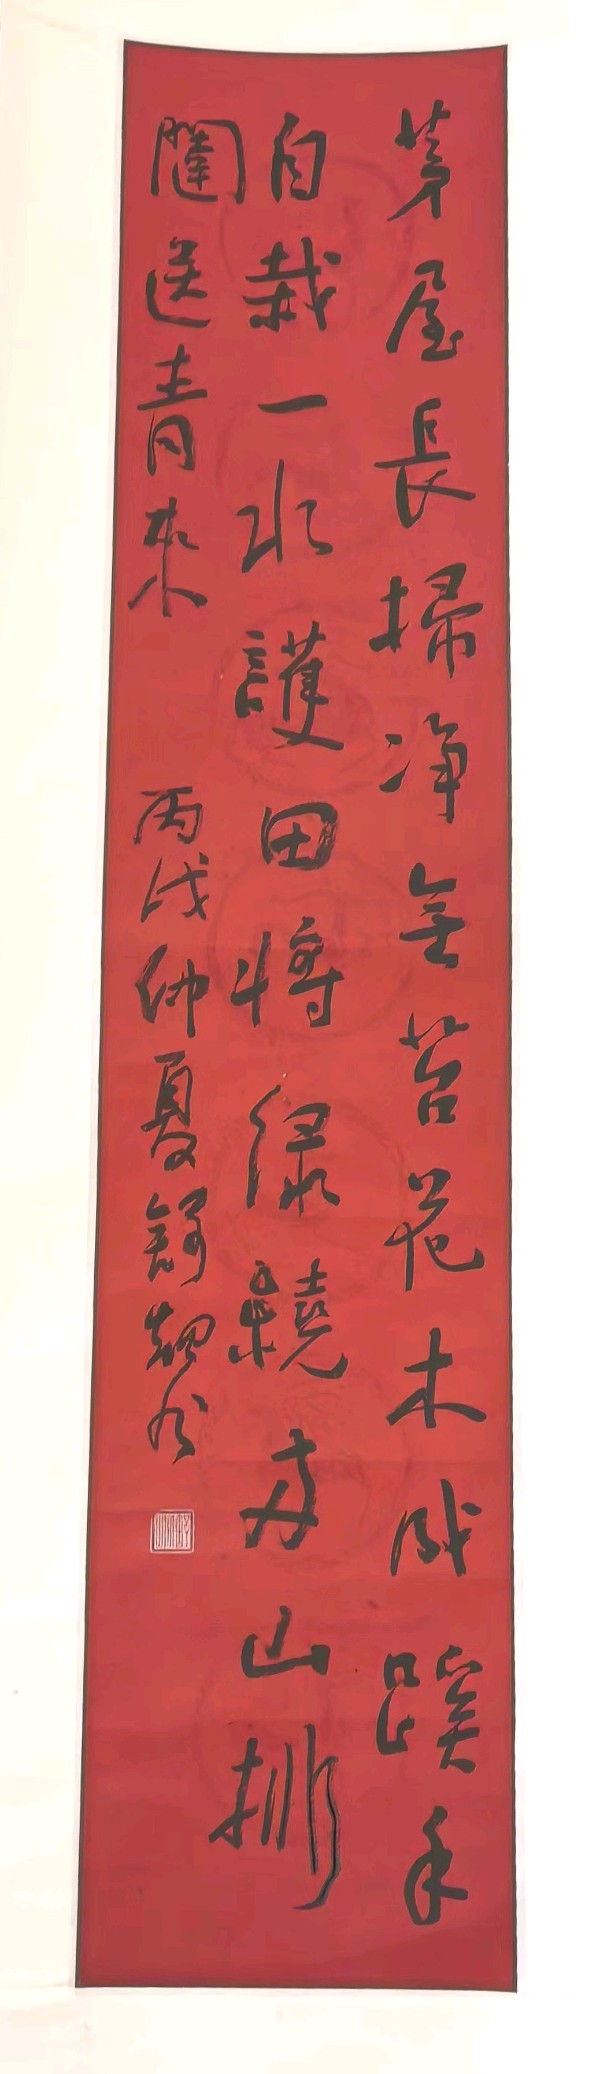 茅屋長掃净無苔花木成蹊手
自栽一水護田將緑繞兩山排
闥送青來
丙戌仲夏舒